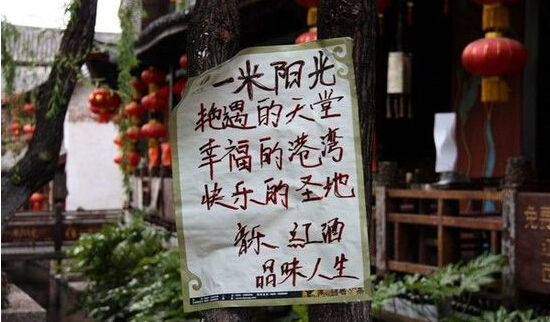 一米阳光
艳遇的天堂
幸福的港湾
快乐的圣地
音乐 红酒
品味人生
免费